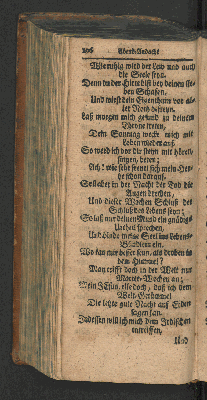 296 Abend-Andacht
Wie ruhig wird der Leib und auch
die Seele seyn.
Denn du der Hirte bist bey deinen lie-
ben Schafen,
Und wirst dein Eigenthum vor al-
ler Noth befreyn.
Laß morgen mich gesund zu deinem
Throne treten,
Dein Sonntag wecke mich mit
Leben wieder auf.
So werd ich vor dir stehn mit hören,
singen, beten;
Ach! wie sehr freuet sich mein Her-
ze schon darauf.
Soll aber in der Nacht der Tod die
Augen brechen,
Und dieser Wochen Schluß des
Schluß des Lebens seyn;
So laß nur deinen Mund ein gnädigs
Urtheil sprechen,
Und binde meine Seel ins Lebens-
Bündlein ein.
Wo kan mir besser seyn, als droben in
dem Himmel?
Man trifft doch in der Welt nur
Marter-Wochen an;
Mein JEsus, eile doch, daß ich dem
Welt-Getümmel
Die letzte gute Nacht auf Erden
sagen kan.
Indessen will ich mich dem Irdischen
entreissen,
Und